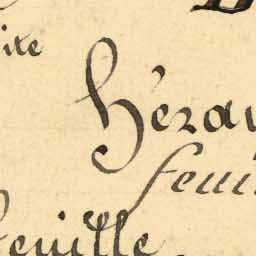 ite
Hérau
feui
feuille